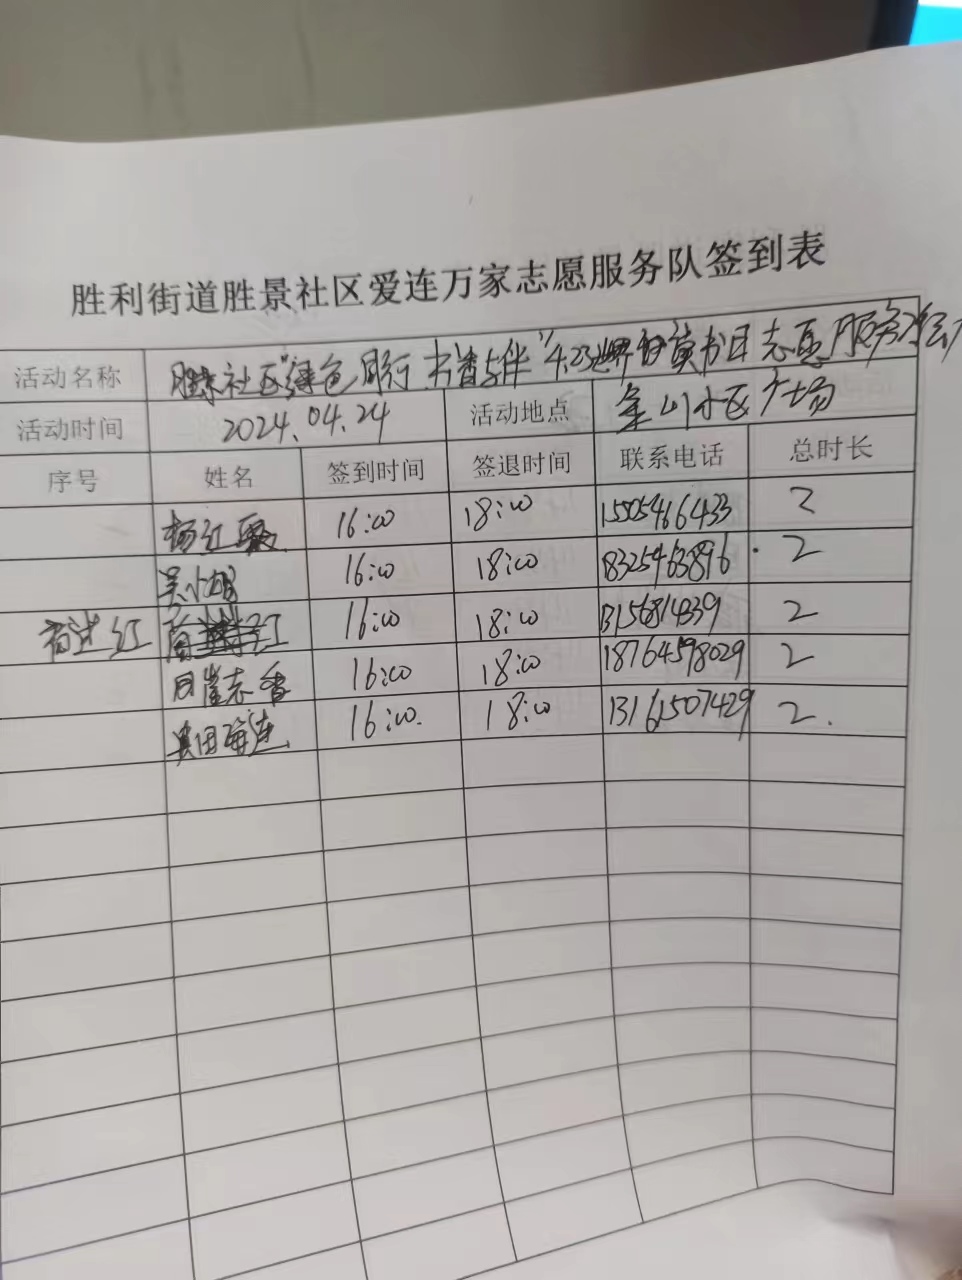 胜利街道胜景社区爱连万家志愿服务队签到表
活动名称 胜景社区"绿色同行 书香与伴"4.23世界读书日志愿服务活动
活动时间 2024.04.24 活动地点 金山小区广场
序号 姓名 签到时间 签退时间 联系电话 总时长
杨红 16:00 18:00 1505466433 2
吴小 16:00 18:00 18325463896 2
红 16:00 18:00 13156814339 2
周崔志香 16:00 18:00 18764598029 2
田海连 16:00. 18:00 13161507429 2.